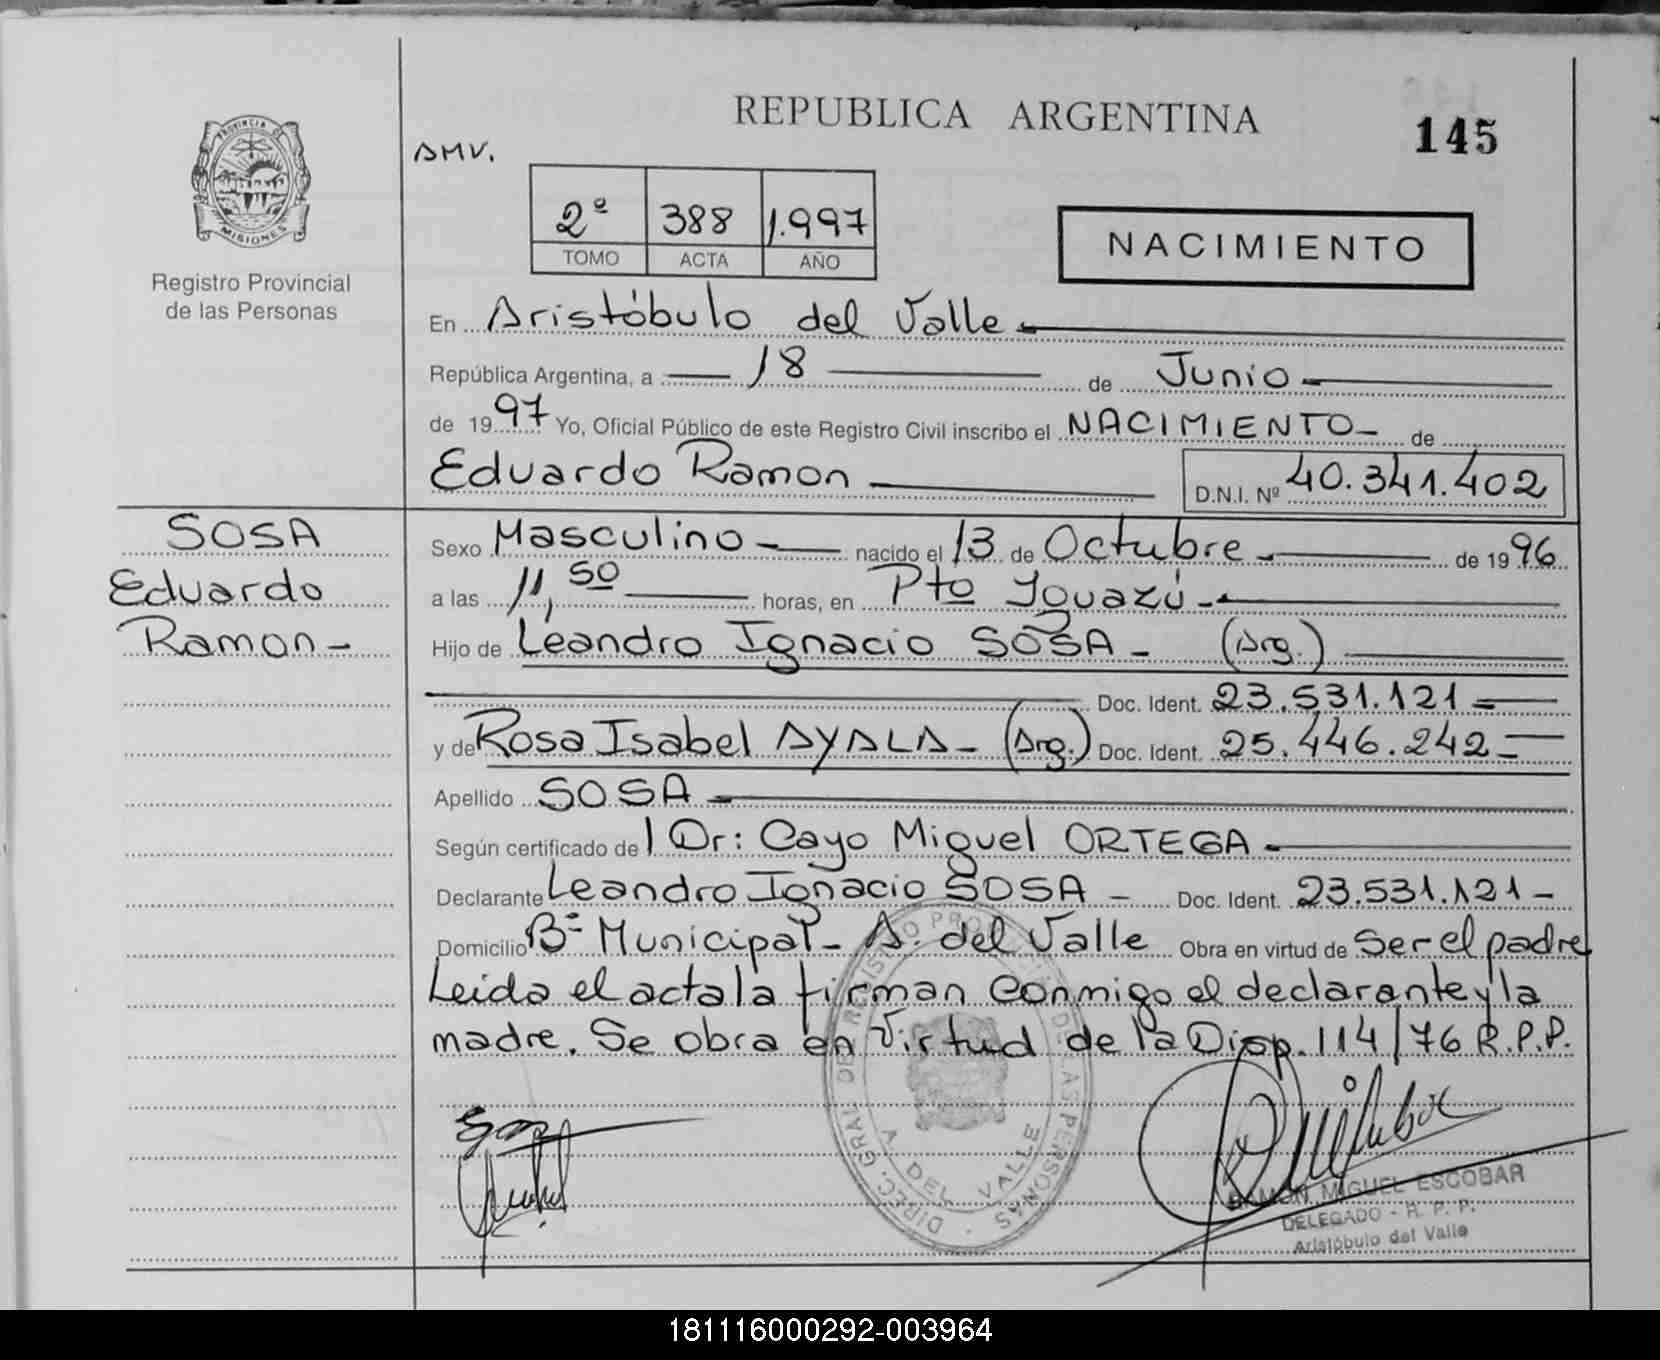 REPUBLICA ARGENTINA
145
PROVINCIA DE
MISIONES
Registro Provincial
de las Personas
AMV.
2º 388 1.997
TOMO ACTA AÑO
NACIMIENTO
En Aristóbulo del Valle
República Argentina, a 18 de Junio
de 1997 Yo, Oficial Público de este Registro Civil inscribo el NACIMIENTO de
Eduardo Ramon D.N.I. Nº 40.341.402
SOSA
Eduardo
Ramon
Sexo Masculino nacido el 13 de Octubre de 1996
a las 11,50 horas, en Pto Iguazú
Hijo de Leandro Ignacio SOSA (Arg.)
Doc. Ident. 23.531.121
y de Rosa Isabel AYALA (Arg.) Doc. Ident. 25.446.242
Apellido SOSA
Según certificado del Dr: Cayo Miguel ORTEGA
Declarante Leandro Ignacio SOSA Doc. Ident. 23.531.121
Domicilio Bº Municipal A. del Valle Obra en virtud de Ser el padre
Leida el acta la firman conmigo el declarante y la
madre. Se obra en virtud de la Disp. 114/76 R.P.P.
DIREC. GRAL DE REGISTRO PROVINCIAL DE LAS PERSONAS
A. DEL VALLE
RAMON MIGUEL ESCOBAR
DELEGADO - R. P. P.
Aristóbulo del Valle
181116000292-003964